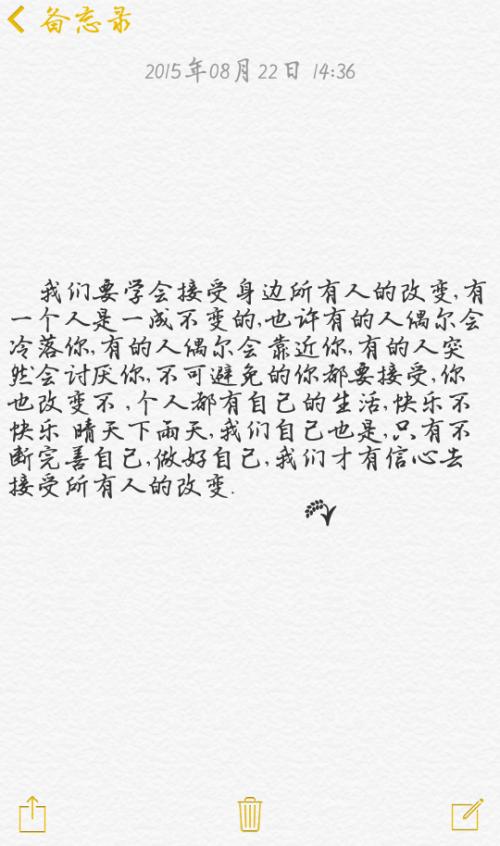 备忘录
2015年08月22日 14:36
我们要学会接受身边所有人的改变,有
一个人是一成不变的,也许有的人偶尔会
冷落你,有的人偶尔会靠近你,有的人突
然会讨厌你,不可避免的你都要接受,你
也改变不,个人都有自己的生活,快乐不
快乐 晴天下雨天,我们自己也是,只有不
断完善自己,做好自己,我们才有信心去
接受所有人的改变.